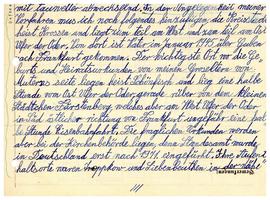 mit tausendter abwechselnd, In der Angelegenheit meiner
Vorfahren muss ich noch folgendes hinzufügen, die Kreisstadt
heist Krossen und liegt zum teil am West und zum teil am Ost
Ufer der Oder. Von dort ist Vater im Januar 1945 über Guben
nach Frankfurt gekommen. Der richtigste Ort wo die Ge
burts und Heiratsurkunden von meinen Grosseltern von
Vaters seite liegen heist und lieg eine halbe
Stunde vom Ost Ufer der Oder, gerade rüber von dem kleinen
Städtchen Fürstenberg welches aber am West Ufer der Oder
in Süd östlicher richtung von Frankfurt ungefähr eine
stunde Eisenbahnfahrt. Die fraglichen Urkunden werden
aber bei der Kirchenbehörde liegen, denn Standesamt wurde
in Deutschland erst nach 1871 eingeführt. Ihre
halts orte waren und Lieben in der nähe
III